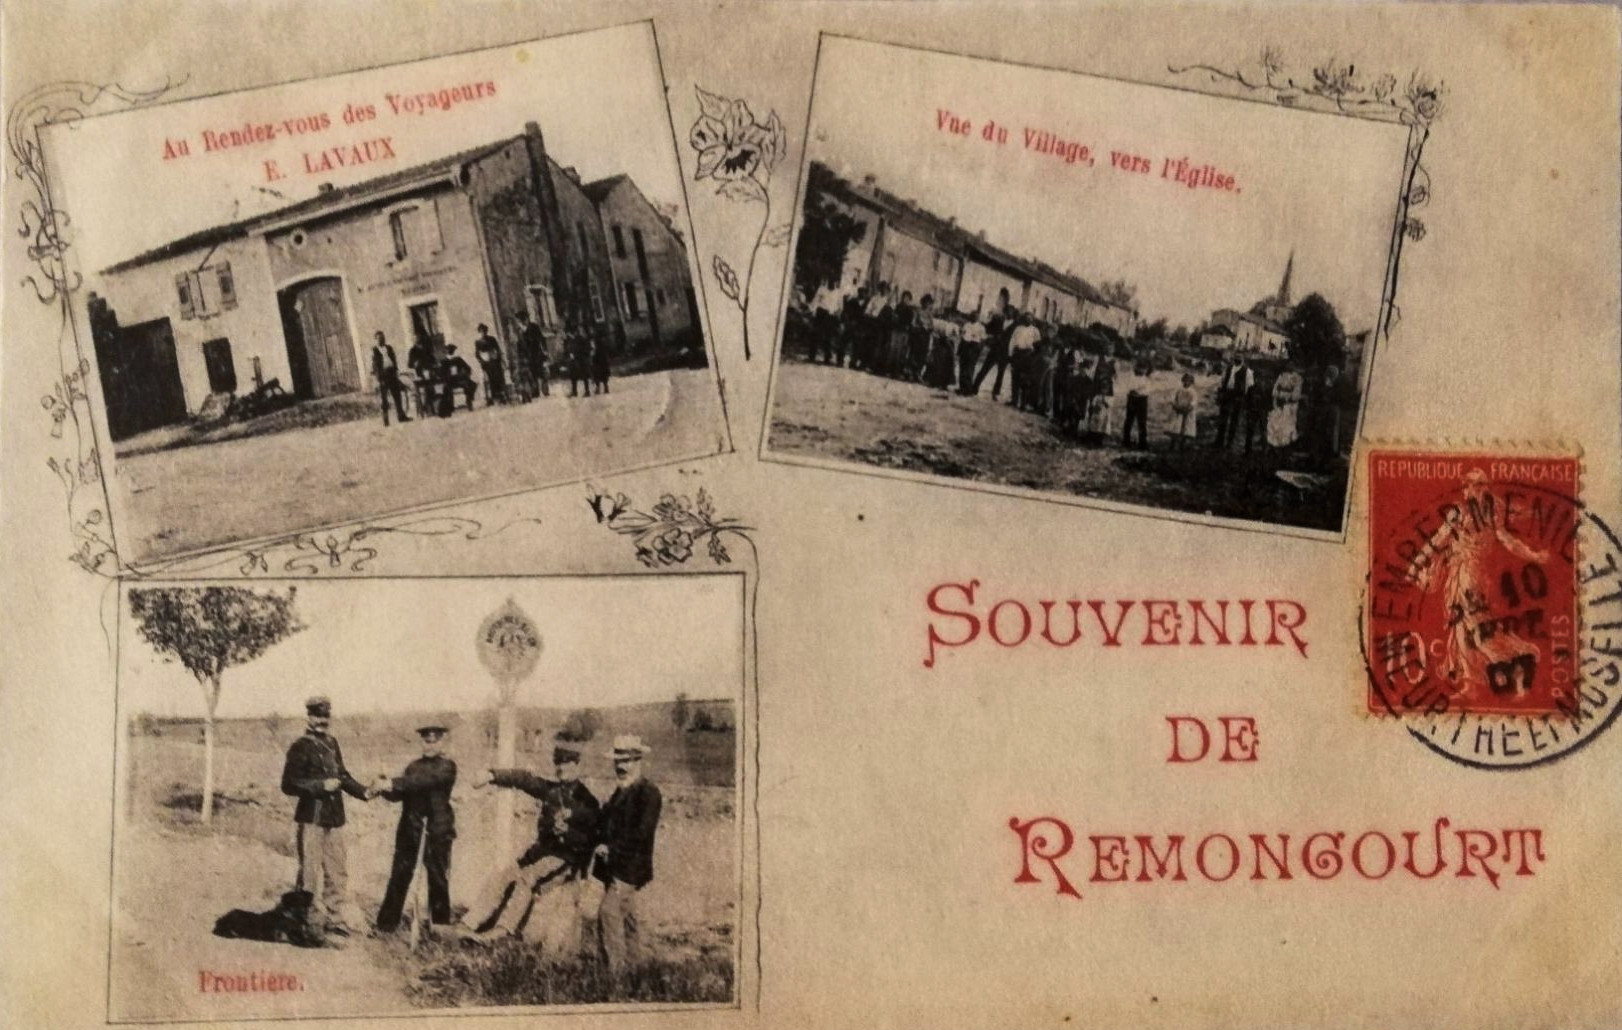 Au Rendez-vous des Voyageurs
E. LAVAUX
Vue du Village, vers l'Église.
Frontière.
SOUVENIR
DE
REMONCOURT
REPUBLIQUE FRANÇAISE
POSTES
10c
EMBERMENIL
10
07
MEURTHE ET MOSELLE